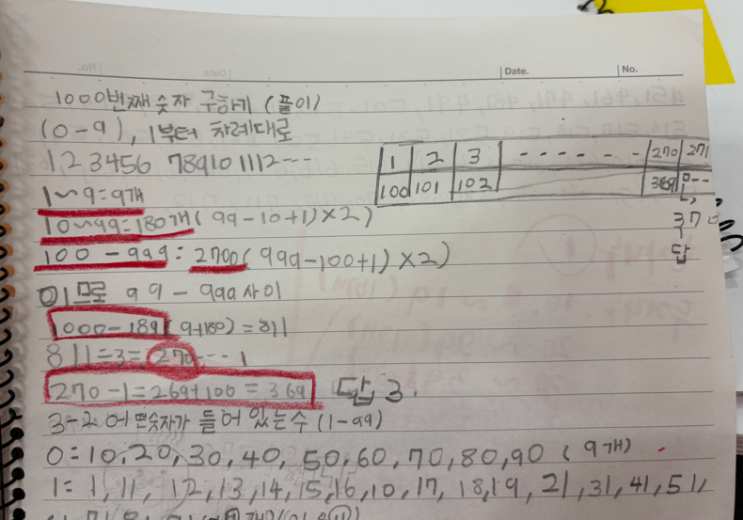 Date. No.
1000번째 숫자 구하기 (풀이)
(0-9), 1부터 차례대로
123456 789101112---
1~9=9개
10~99=180개(99-10+1)×2)
100-999=2700(999-100+1)×2)
이므로 99-999사이
1000-189(9+180)=811
811÷3=270---1
270-1=269+100=369 답 3.
1 2 3 ------ 270 271
100 101 102 369
370
답
3-2 어떤숫자가 들어 있는수 (1-99)
0=10,20,30,40,50,60,70,80,90 (9개)
1=1,11,12,13,14,15,16,10,17,18,19,21,31,41,51,